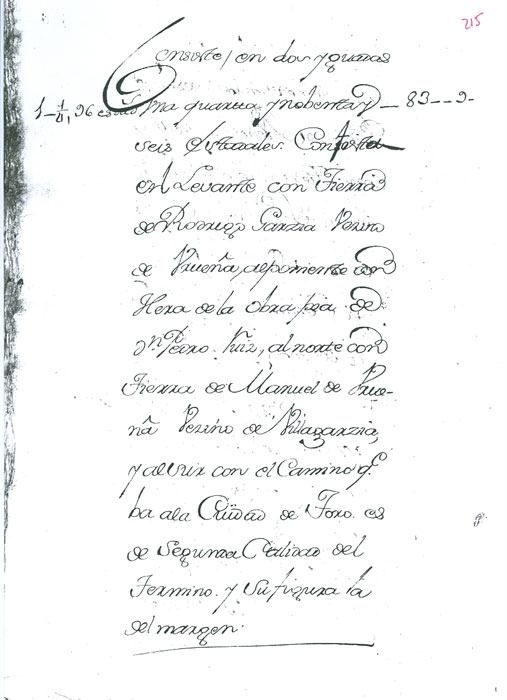 215
Consiste en dos yguadas
1-1/4, 96 estad. Una quarta y nobenta y - 83 -- 9-
seis estadales. Confronta
en Levante con Tierra
de Rodrigo Garzia Vezino
de Vrueña, al poniente con
Hera de la obra pia de
Dn. Pedro Ruiz, al norte con
Tierra de Manuel de Vrue-
ña Vezino de Villagarzia,
y al sur con el Camino q.e
ba a la Ciudad de Toro. es
de Segunda Calidad del
Termino. y su figura la
del margen.